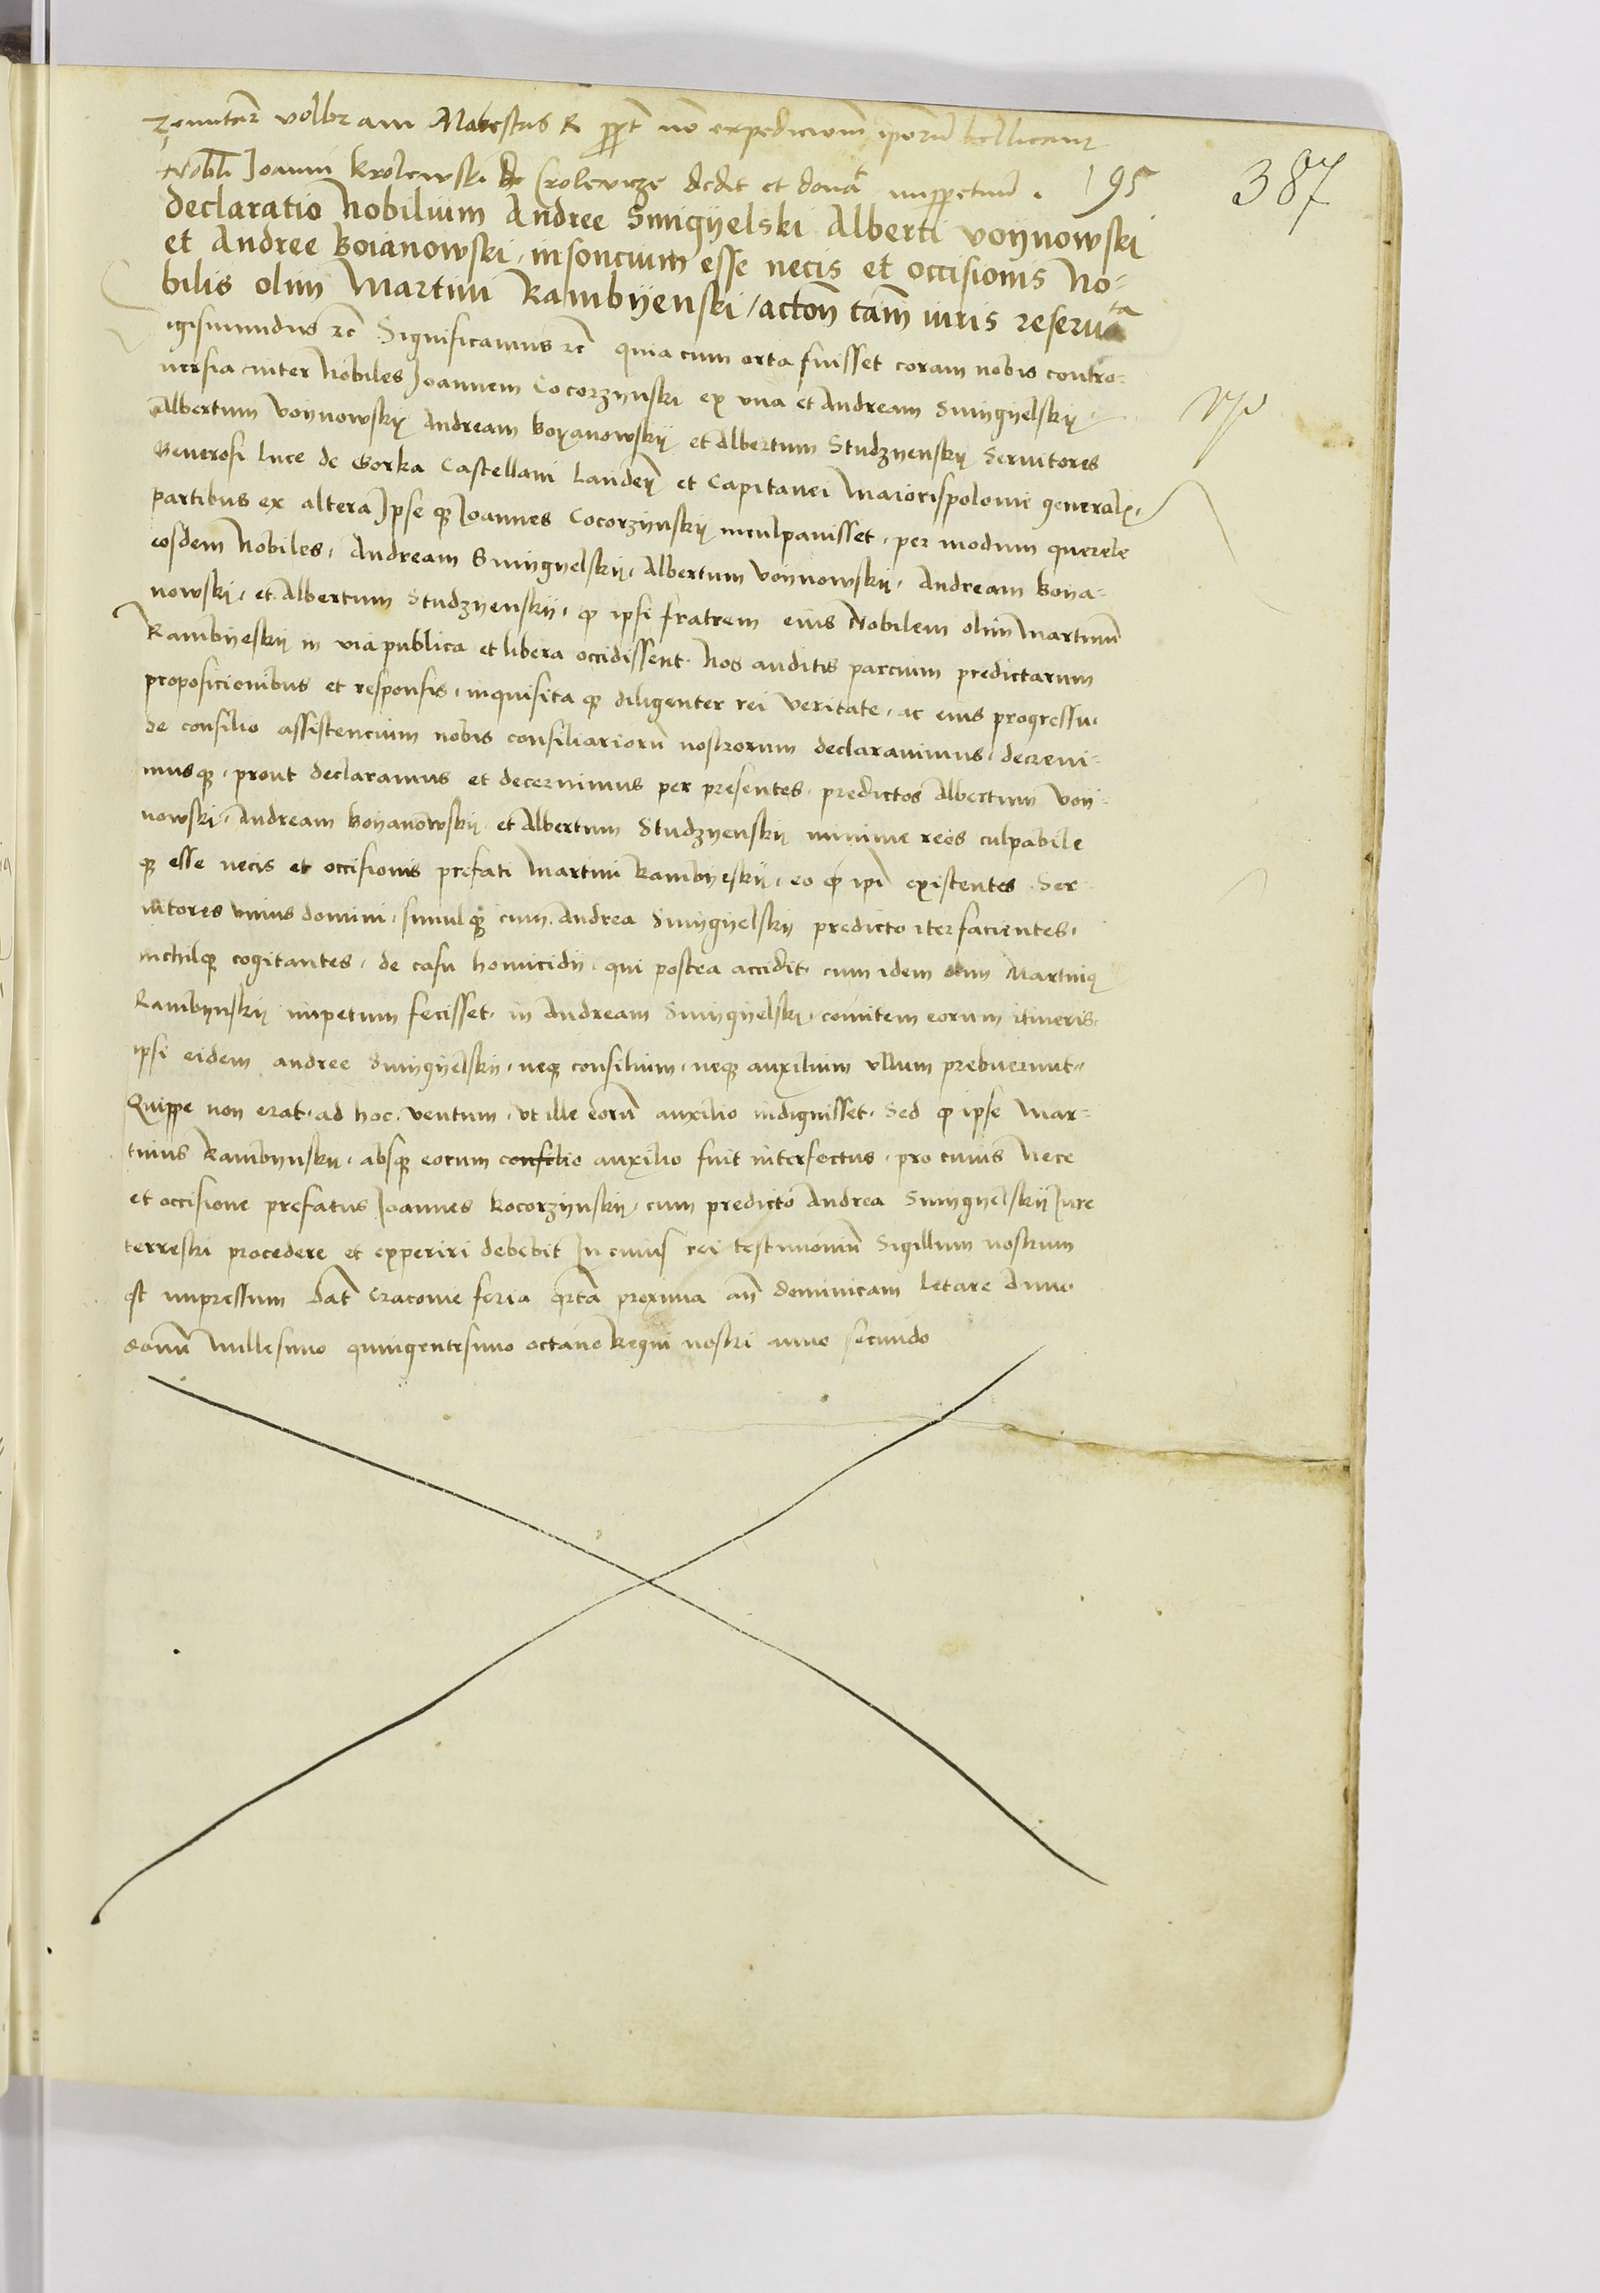 Maiestas R non expedicionem iporum bellicam
Nobli Joanni Krolewski de Crolewicze dedit et donat imppetuum . 195
387
declaratio Nobilium Andree Smigÿelski Alberti voÿnowski
et Andree Boianowski, insoncium esse necis et occisionis No-
bilis olim Martini Rambÿenski / acton tam iuris reserua
ta
igismundus rc Significamus rc quia cum orta fuisset coram nobis contro-
uersia inter Nobiles Joannem Cocorzynski ex vna et Andream Smigÿelskÿ,
Albertum Voÿnowskÿ Andream Boyanowskÿ et Albertum Studzÿenskÿ Seruitores
Generosi Luce de Gorka Castellani Landeñ et Capitanei Maiorispolonie generalis,
partibus ex altera Ipse qz Joannes Cocorzÿnskÿ inculpauisset, per modum querele
eosdem Nobiles, Andream Smigÿelskÿ, Albertum Voÿnowskÿ, Andream Boya-
nowski, et Albertum Studzÿenskÿ, qp ipsi fratrem eius Nobilem olim Martinum
Rambÿeskÿ in via publica et libera occidissent. Nos auditis parcium predictarum
proposicionibus et responsis, inquisita qz diligenter rei veritate, ac eius progressu,
de consilio assistencium nobis consiliariorum nostrorum declarauimus, decreui-
musqz, prout declaramus et decernimus per presentes, predictos Albertum Voÿ-
nowski, Andream Boÿanowskÿ et Albertum Studzÿenskÿ minime reos culpabile
qz esse necis et occisionis prefati Martini Rambÿeskÿ, eo qp ipi existentes Ser
uitores vnius domini, simulqz cum Andrea Smigÿelskÿ predicto iter facientes,
nichilqz cogitantes, de casu homicidii, qui postea accidit, cum idem olim Martinus
Rambÿnskÿ impetum fecisset, in Andream Smigÿelski, comitem eorum itineris,
ipsi eidem andree Smigÿelskÿ, neqz consilium, neqz auxilium vllum prebuerunt,
Quippe non erat, ad hoc, ventum, vt ille eorum auxilio indiguisset, Sed qp ipse Mar-
tinus Rambÿnskÿ, absqz eorum consilio auxilio fuit interfectus, pro cuius Nece
et occisione prefatus Joannes Kocorzÿnskÿ, cum predicto Andrea Smigÿelskÿ Iure
terrestri procedere et experiri debebit In cuius rei testimonium Sigillum nostrum
est impressum Dat Cracouie feria qrta proxima an dominicam letare Anno
domini Millesimo quingentesimo octauo Regni nostri anno secundo